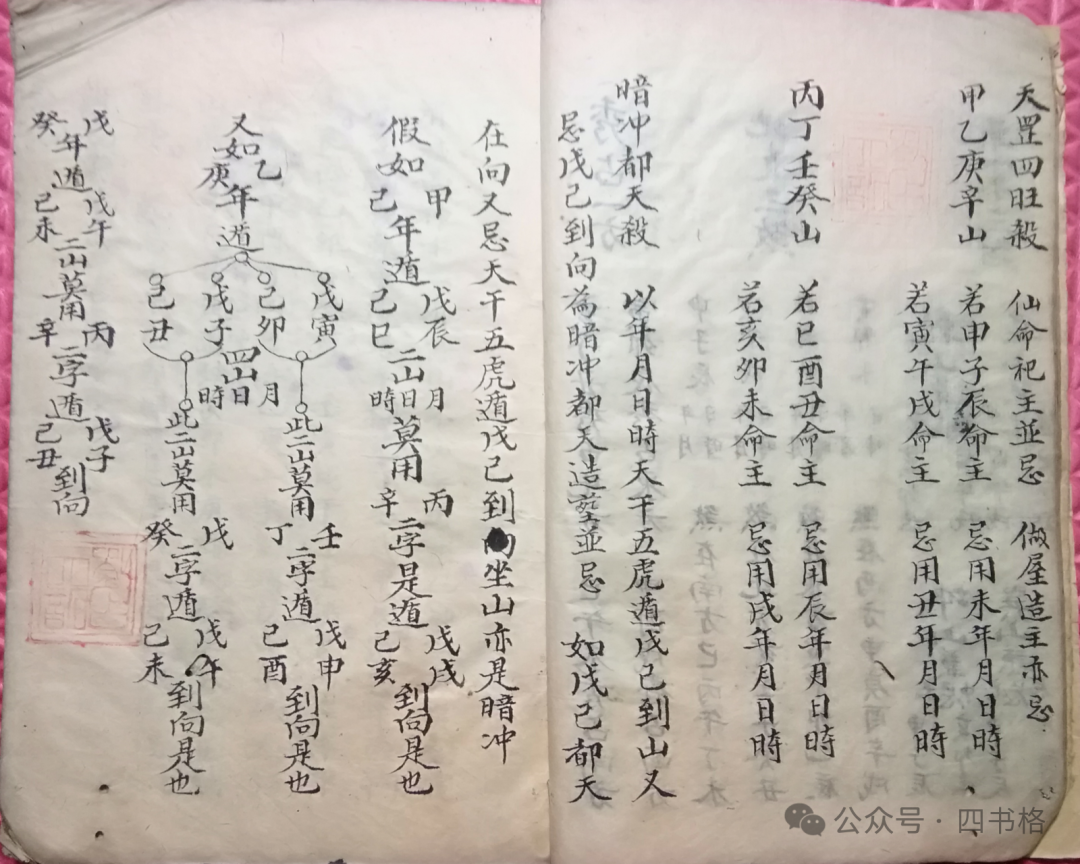 天罡四旺殺　仙命祀主並忌　做屋造主亦忌
甲乙庚辛山　若申子辰命主　忌用未年月日時
若寅午戌命主　忌用丑年月日時
丙丁壬癸山　若巳酉丑命主　忌用辰年月日時
若亥卯未命主　忌用戌年月日時
暗冲都天殺　以年月日時天干五虎遁戊己到山又
忌戊己到向為暗冲都天造塟並忌　如戊己都天
在向又忌天干五虎遁戊己到向坐山亦是暗冲
假如甲己年遁戊辰己巳二山月日時莫用丙辛二字是遁戊戌己亥到向是也
又如乙庚年遁
戊寅己卯戊子己丑四山月日時
此二山莫用壬丁二字遁戊申己酉到向是也
此二山莫用戊癸二字遁戊午己未到向是也
戊癸年遁戊午己未二山莫用丙辛二字遁戊子己丑到向
公众号·四书格